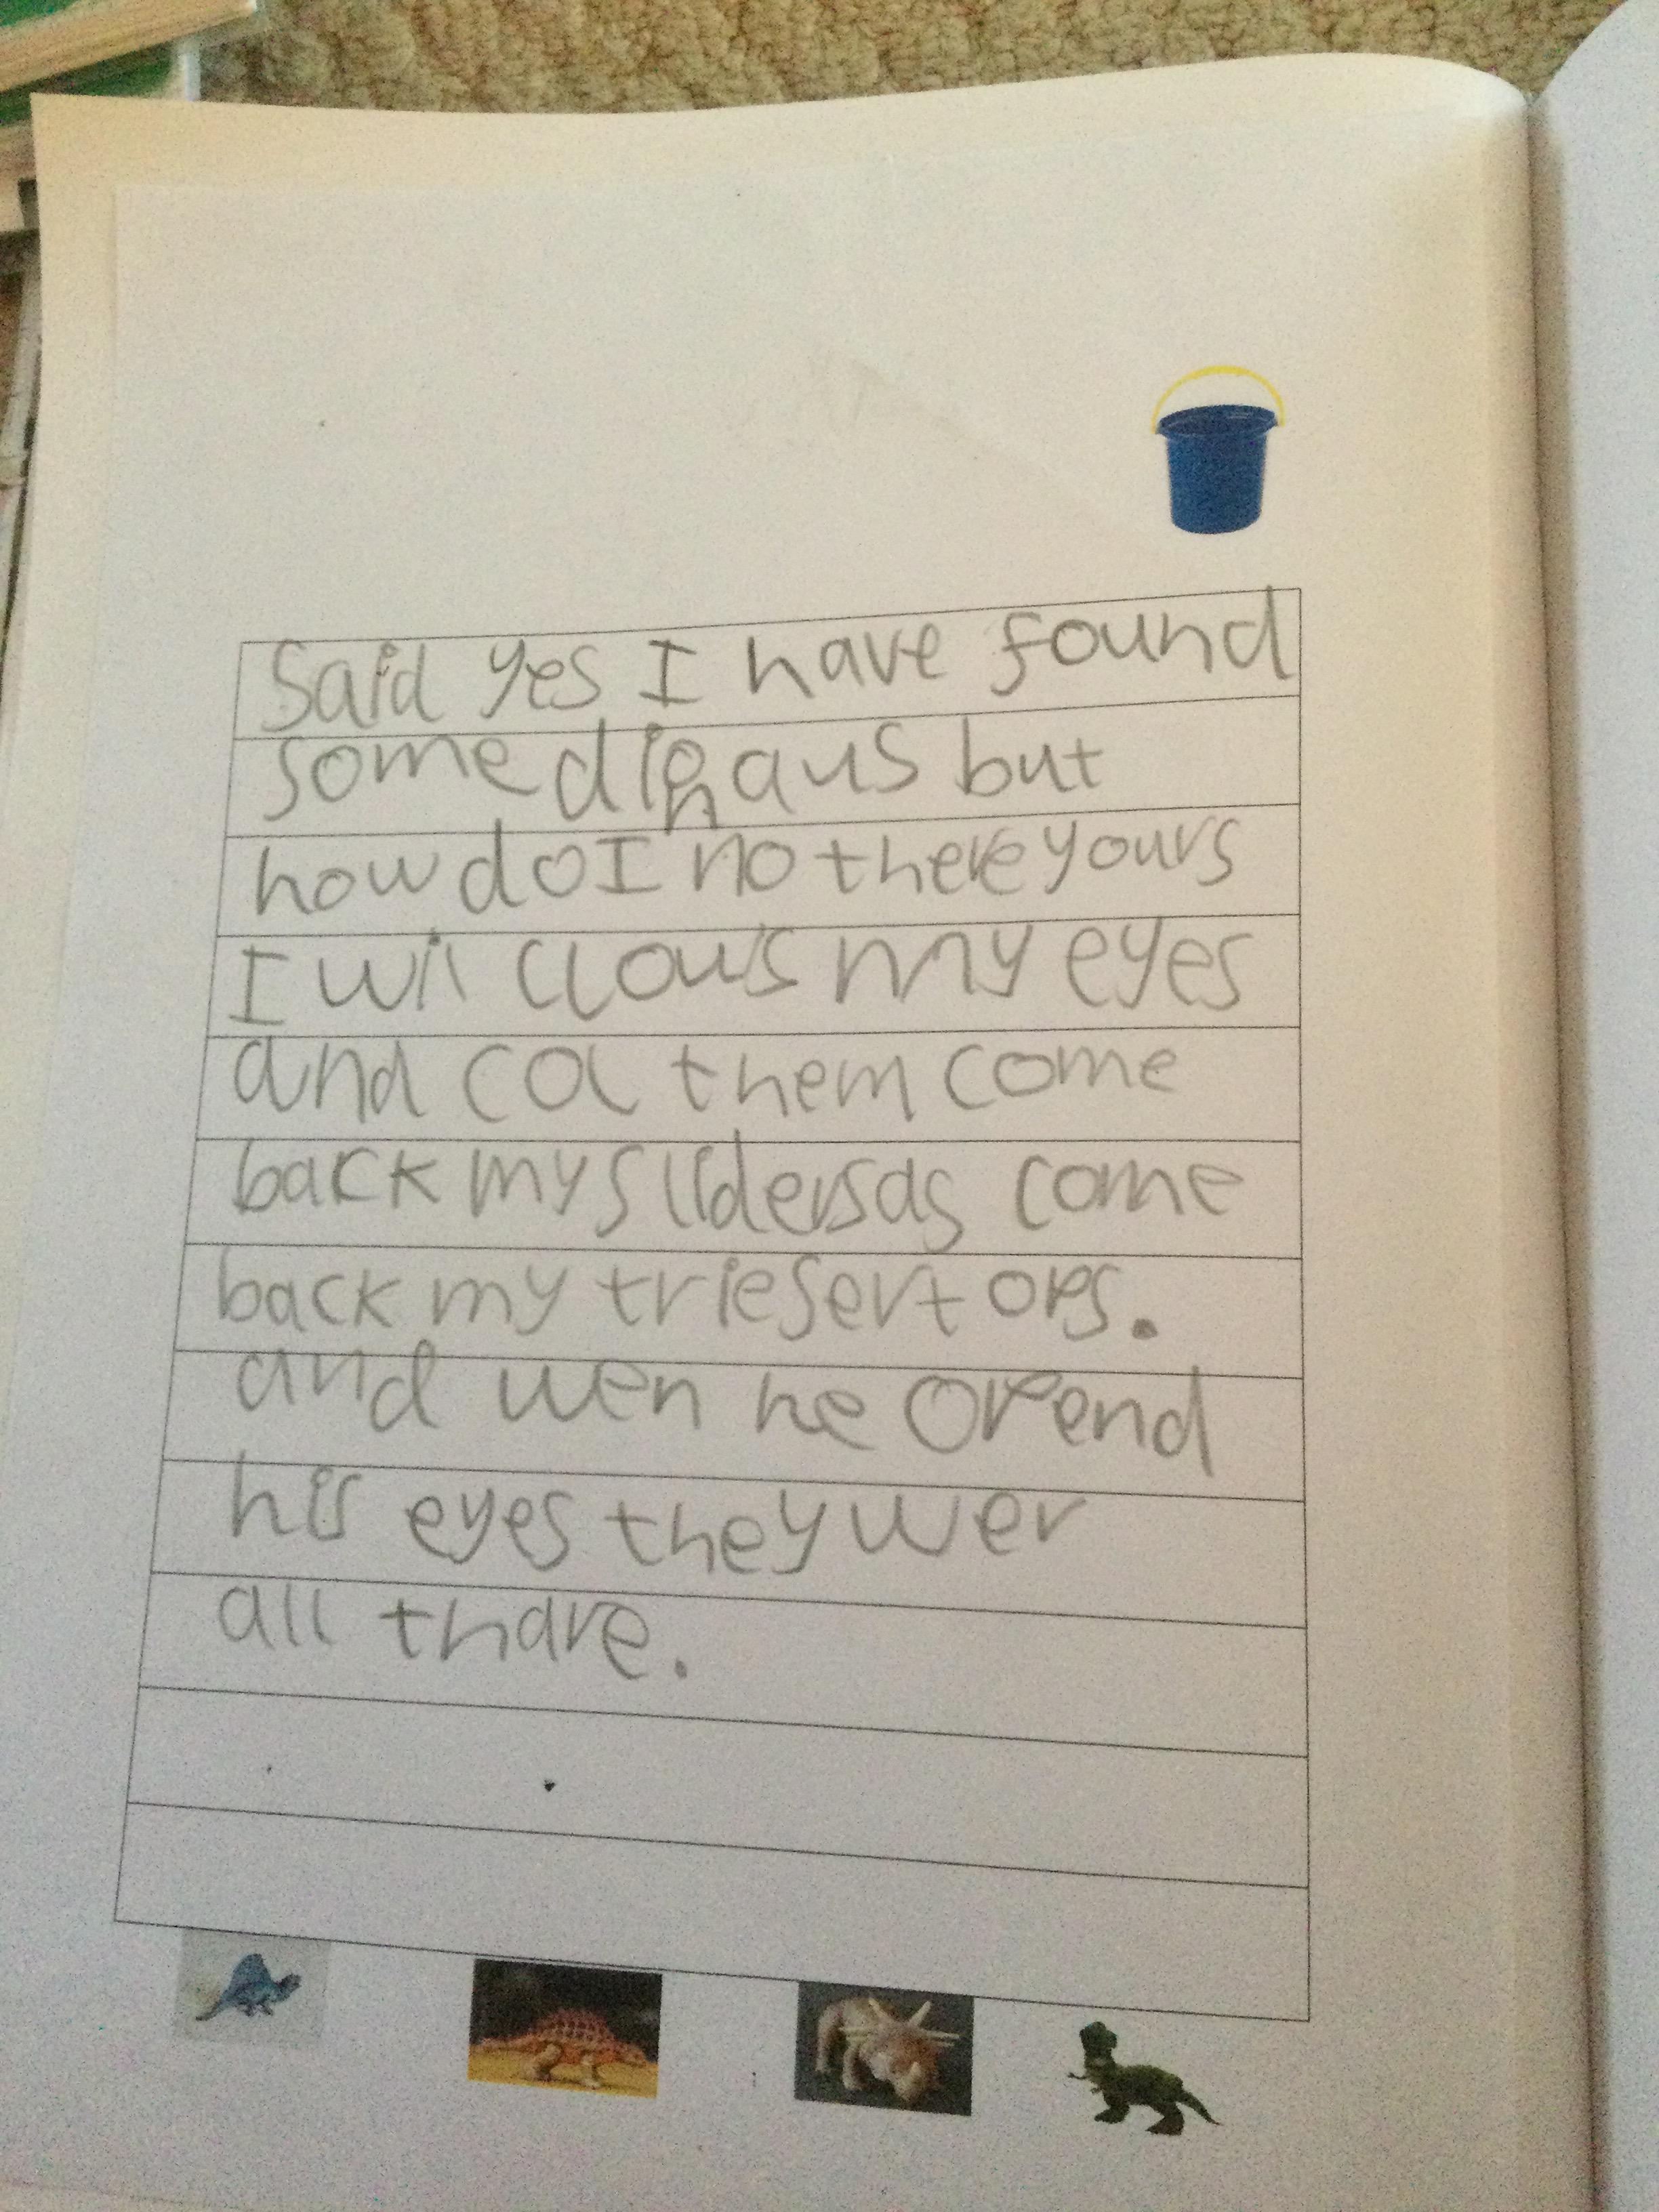 Said yes I have found
some dinaus but
how do I no there yours
I wil clouis my eyes
and col them come
back my slidersas come
back my triesertops.
and wen he opend
his eyes they wer
all thare.